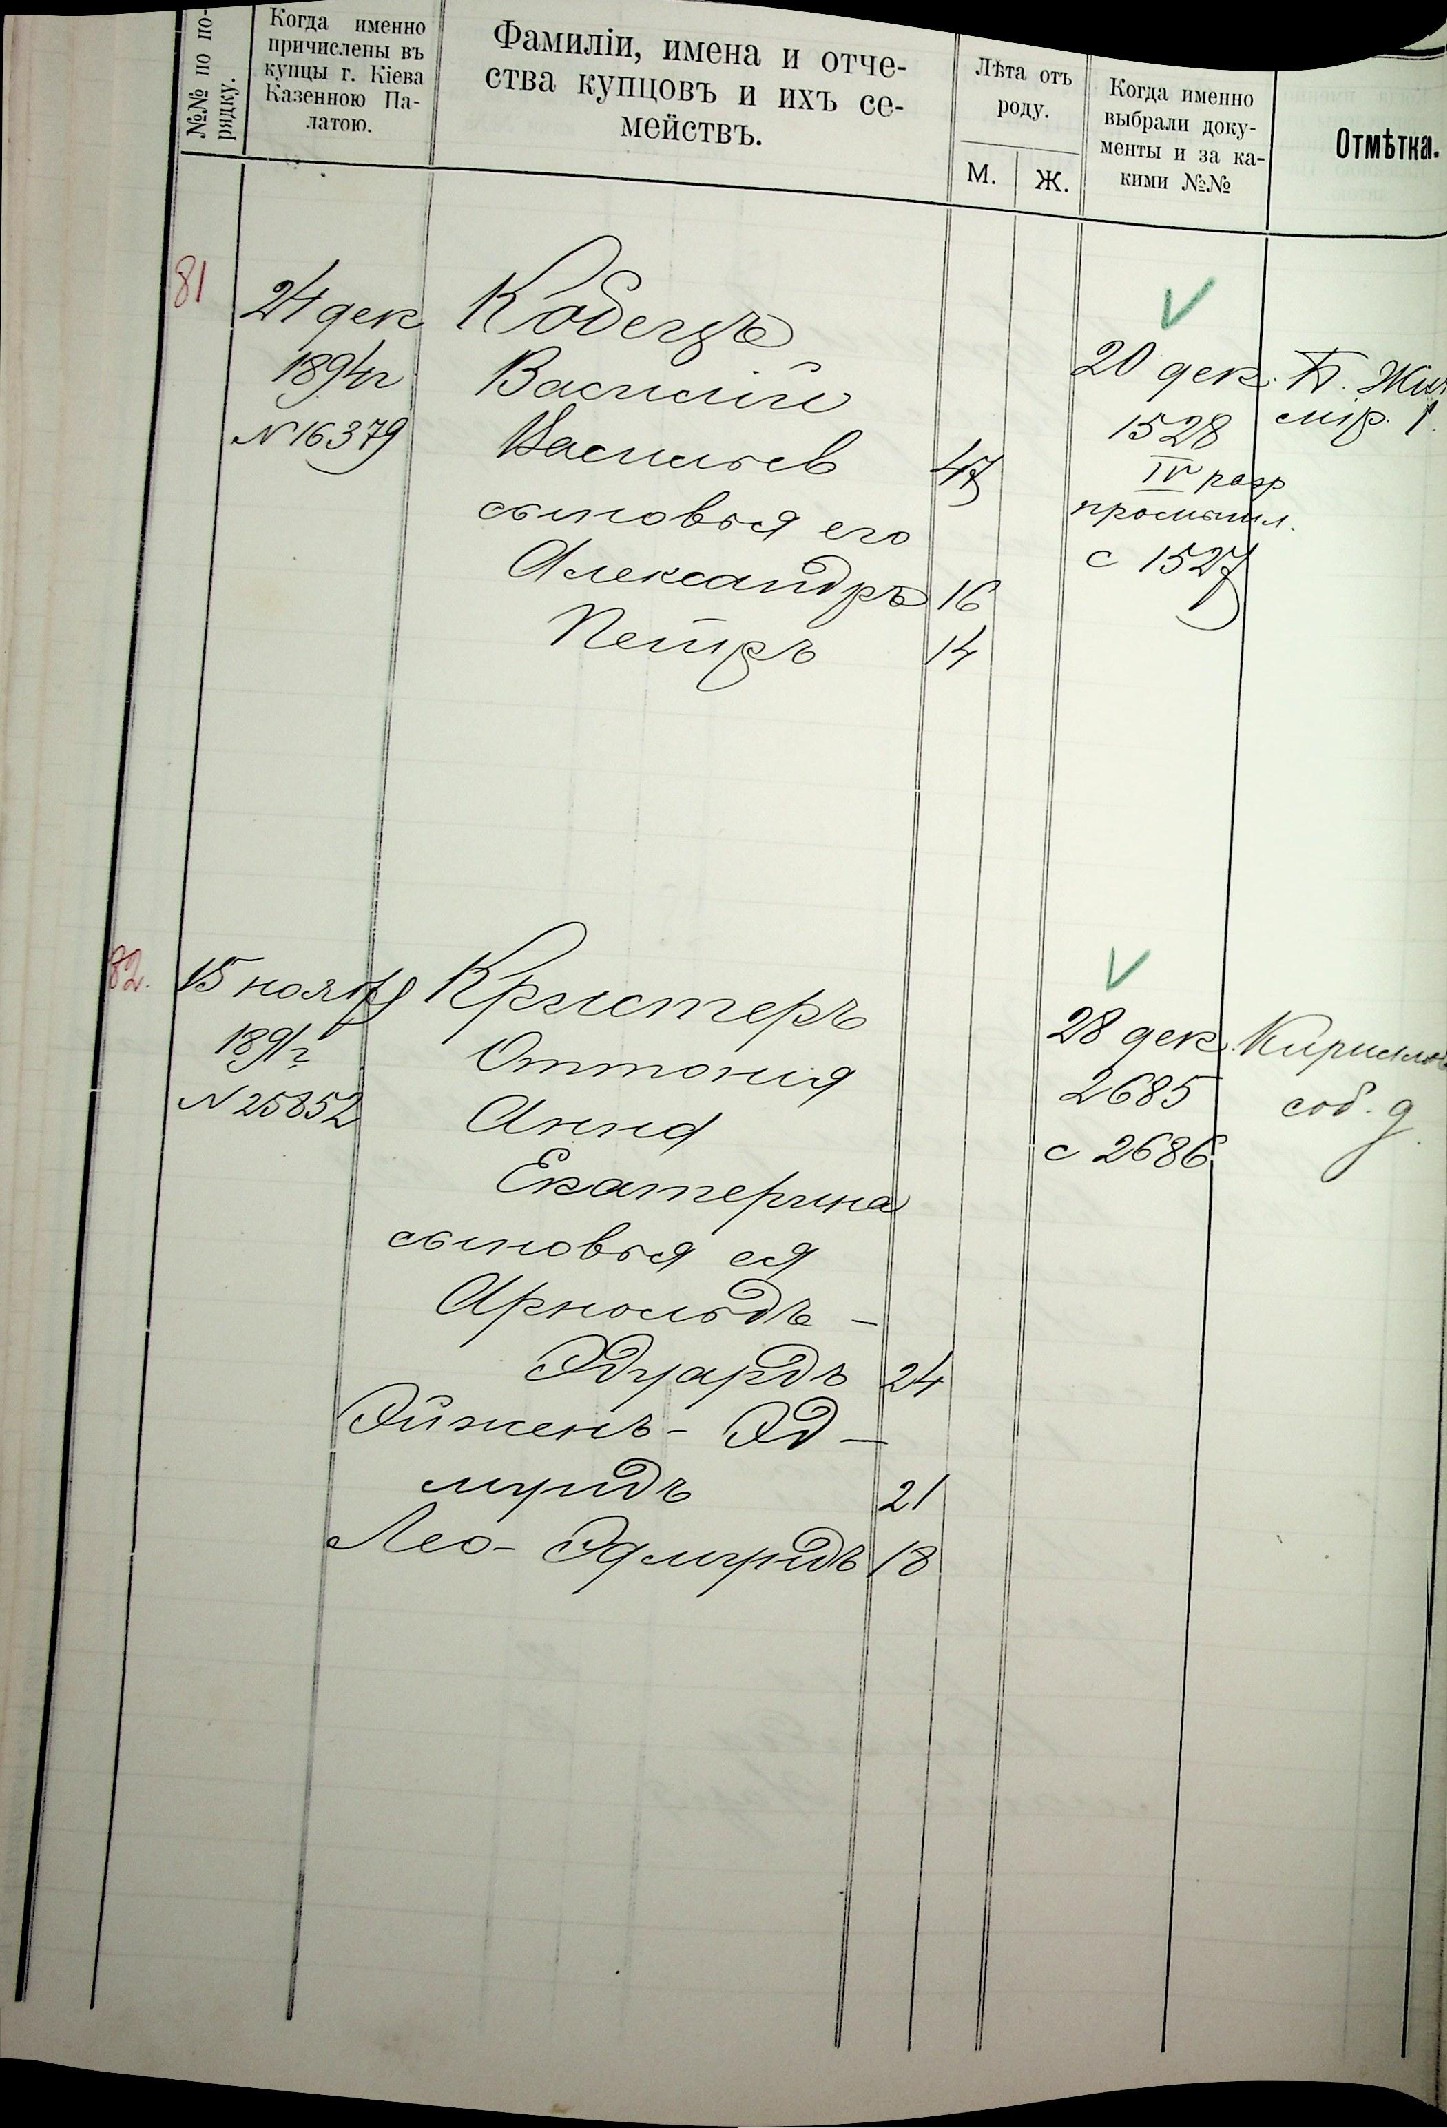 №№ по по-
рядку.
Когда именно
причислены въ
купцы г. Кіева
Казенною Па-
латою.
Фамиліи, имена и отче-
ства купцовъ и ихъ се-
мействъ.
Лѣта отъ
роду.
М. Ж.
Когда именно
выбрали доку-
менты и за ка-
кими №№
Отмѣтка.
81
24 дек
1894 г
N 16379
Кобецъ
Василій
Васильев 47
сыновья его
Александръ 16
Петръ 14
20 дек.
1528
IV разр
промысл.
с 1527
Б. Жит
мір. 1.
82.
15 ноября
1891 г
N 25852
Крыстеръ
Оттония
Анна
Екатерина
сыновья ея
Арнольдъ –
Эдуардъ 24
Эйженъ - Эд –
мундъ 21
Лео - Эдмундъ 18
28 дек.
2685
с 2686
Кирилло
соб. д.